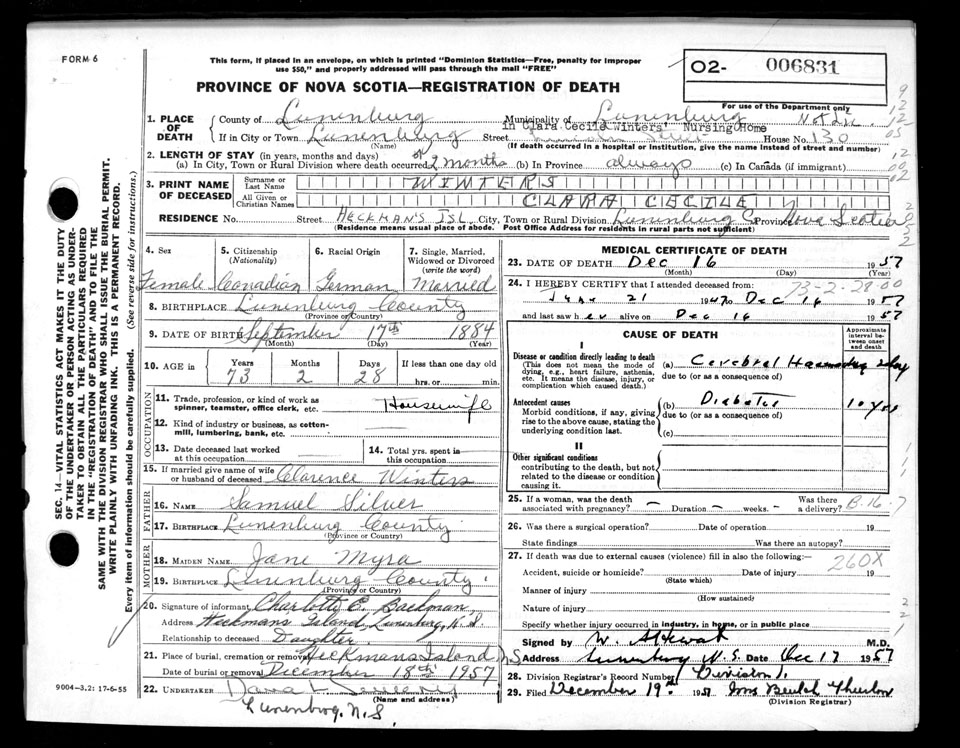 FORM 6
This form, if placed in an envelope, on which is printed "Dominion Statistics—Free, penalty for improper
use $50," and properly addressed will pass through the mail "FREE"
PROVINCE OF NOVA SCOTIA—REGISTRATION OF DEATH
O2- 006831
For use of the Department only
SEC. 14—VITAL STATISTICS ACT MAKES IT THE DUTY
OF THE UNDERTAKER OR PERSON ACTING AS UNDER-
TAKER TO OBTAIN ALL THE PARTICULARS REQUIRED
IN THE "REGISTRATION OF DEATH" AND TO FILE THE
SAME WITH THE DIVISION REGISTRAR WHO SHALL ISSUE THE BURIAL PERMIT.
WRITE PLAINLY WITH UNFADING INK. THIS IS A PERMANENT RECORD.
Every item of information should be carefully supplied. (See reverse side for instructions.)
1. PLACE OF DEATH
County of Lunenburg Municipality of Lunenburg
in Clara Cecile Winters' Nursing Home
If in City or Town Lunenburg Street House No. 130
(Name) (If death occurred in a hospital or institution, give the name instead of street and number)
2. LENGTH OF STAY (in years, months and days)
(a) In City, Town or Rural Division where death occurred 2 months (b) In Province always (c) In Canada (if immigrant)
3. PRINT NAME OF DECEASED
Surname or Last Name WINTERS
All Given or Christian Names CLARA CECILE
RESIDENCE No. Street HECKMAN'S ISL. City, Town or Rural Division Lunenburg C. Province Nova Scotia
(Residence means usual place of abode. Post Office Address for residents in rural parts not sufficient)
4. Sex 5. Citizenship (Nationality) 6. Racial Origin 7. Single, Married, Widowed or Divorced (write the word)
Female Canadian German Married
8. BIRTHPLACE Lunenburg County
(Province or Country)
9. DATE OF BIRTH September 17th 1884
(Month) (Day) (Year)
10. AGE in Years Months Days If less than one day old
73 2 28 hrs. or min.
OCCUPATION
11. Trade, profession, or kind of work as spinner, teamster, office clerk, etc. Housewife
12. Kind of industry or business, as cotton-mill, lumbering, bank, etc.
13. Date deceased last worked at this occupation 14. Total yrs. spent in this occupation
15. If married give name of wife or husband of deceased Clarence Winters
FATHER
16. NAME Samuel Silver
17. BIRTHPLACE Lunenburg County
(Province or Country)
MOTHER
18. MAIDEN NAME Jane Myra
19. BIRTHPLACE Lunenburg County
(Province or Country)
20. Signature of informant Charlotte E. Backman
Address Heckmans Island, Lunenburg, N.S.
Relationship to deceased Daughter
21. Place of burial, cremation or removal Heckmans Island N.S
Date of burial or removal December 18th 1957
22. UNDERTAKER
(Name and address)
Lunenburg. N.S.
9004—3,2: 17-6-55
MEDICAL CERTIFICATE OF DEATH
23. DATE OF DEATH Dec 16 1957
(Month) (Day) (Year)
73-2-28-00
24. I HEREBY CERTIFY that I attended deceased from:
21 1947 to Dec 16 1957
and last saw her alive on Dec 16 1957
CAUSE OF DEATH
Approximate interval between onset and death
I
Disease or condition directly leading to death
(This does not mean the mode of dying, e.g., heart failure, asthenia, etc. It means the disease, injury, or complication which caused death.)
(a) Cerebral
due to (or as a consequence of)
Antecedent causes
Morbid conditions, if any, giving rise to the above cause, stating the underlying condition last.
(b) Diabetes 10 yrs
due to (or as a consequence of)
(c)
II
Other significant conditions
contributing to the death, but not related to the disease or condition causing it.
25. If a woman, was the death associated with pregnancy? — Duration — weeks. — Was there a delivery?
B.16
26. Was there a surgical operation? Date of operation 19
State findings Was there an autopsy?
27. If death was due to external causes (violence) fill in also the following:—
260X
Accident, suicide or homicide? Date of injury 19
(State which)
Manner of injury
(How sustained)
Nature of injury
Specify whether injury occurred in industry, in home, or in public place
Signed by W. M.D.
Address Lunenburg N.S. Date Dec 17 1957
28. Division Registrar's Record Number Division 1.
29. Filed December 19th 1957 Mrs Beulah
(Division Registrar)